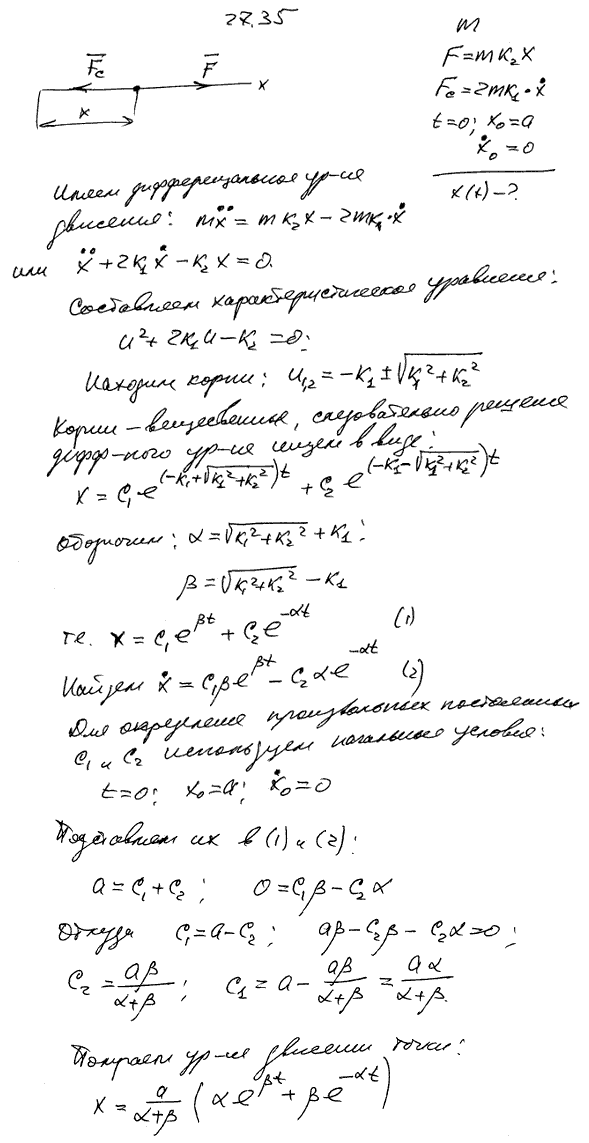 27.35
m
F = mk₂x
Fc = 2mk₁·ẋ
t=0; x₀=a
ẋ₀=0
x(t)-?
F̅c F̅ x
x
Имеем дифференциальное ур-ие
движения: mẍ = mk₂x - 2mk₁·ẋ
или ẍ + 2k₁ẋ - k₂x = 0.
Составляем характеристическое уравнение:
u² + 2k₁u - k₂ = 0;
Находим корни: u₁,₂ = -k₁ ± √(k₁² + k₂²)
Корни – вещественные, следовательно решение
дифф-ного ур-ие ищем в виде:
x = C₁e^(-k₁+√(k₁²+k₂²))t + C₂e^(-k₁-√(k₁²+k₂²))t
Обозначим: α = √(k₁²+k₂²) + k₁;
β = √(k₁²+k₂²) - k₁
т.е. x = C₁e^βt + C₂e^-αt (1)
Найдем ẋ = C₁βe^βt - C₂αe^-αt (2)
Для определение произвольных постоянных
C₁ и C₂ используем начальные условия:
t=0; x₀=a; ẋ₀=0
Подставляем их в (1) и (2):
a = C₁ + C₂; 0 = C₁β - C₂α
Откуда C₁ = a - C₂; aβ - C₂β - C₂α = 0;
C₂ = aβ/(α+β); C₁ = a - aβ/(α+β) = aα/(α+β).
Получаем ур-ие движении точки:
x = a/(α+β) (αe^βt + βe^-αt)